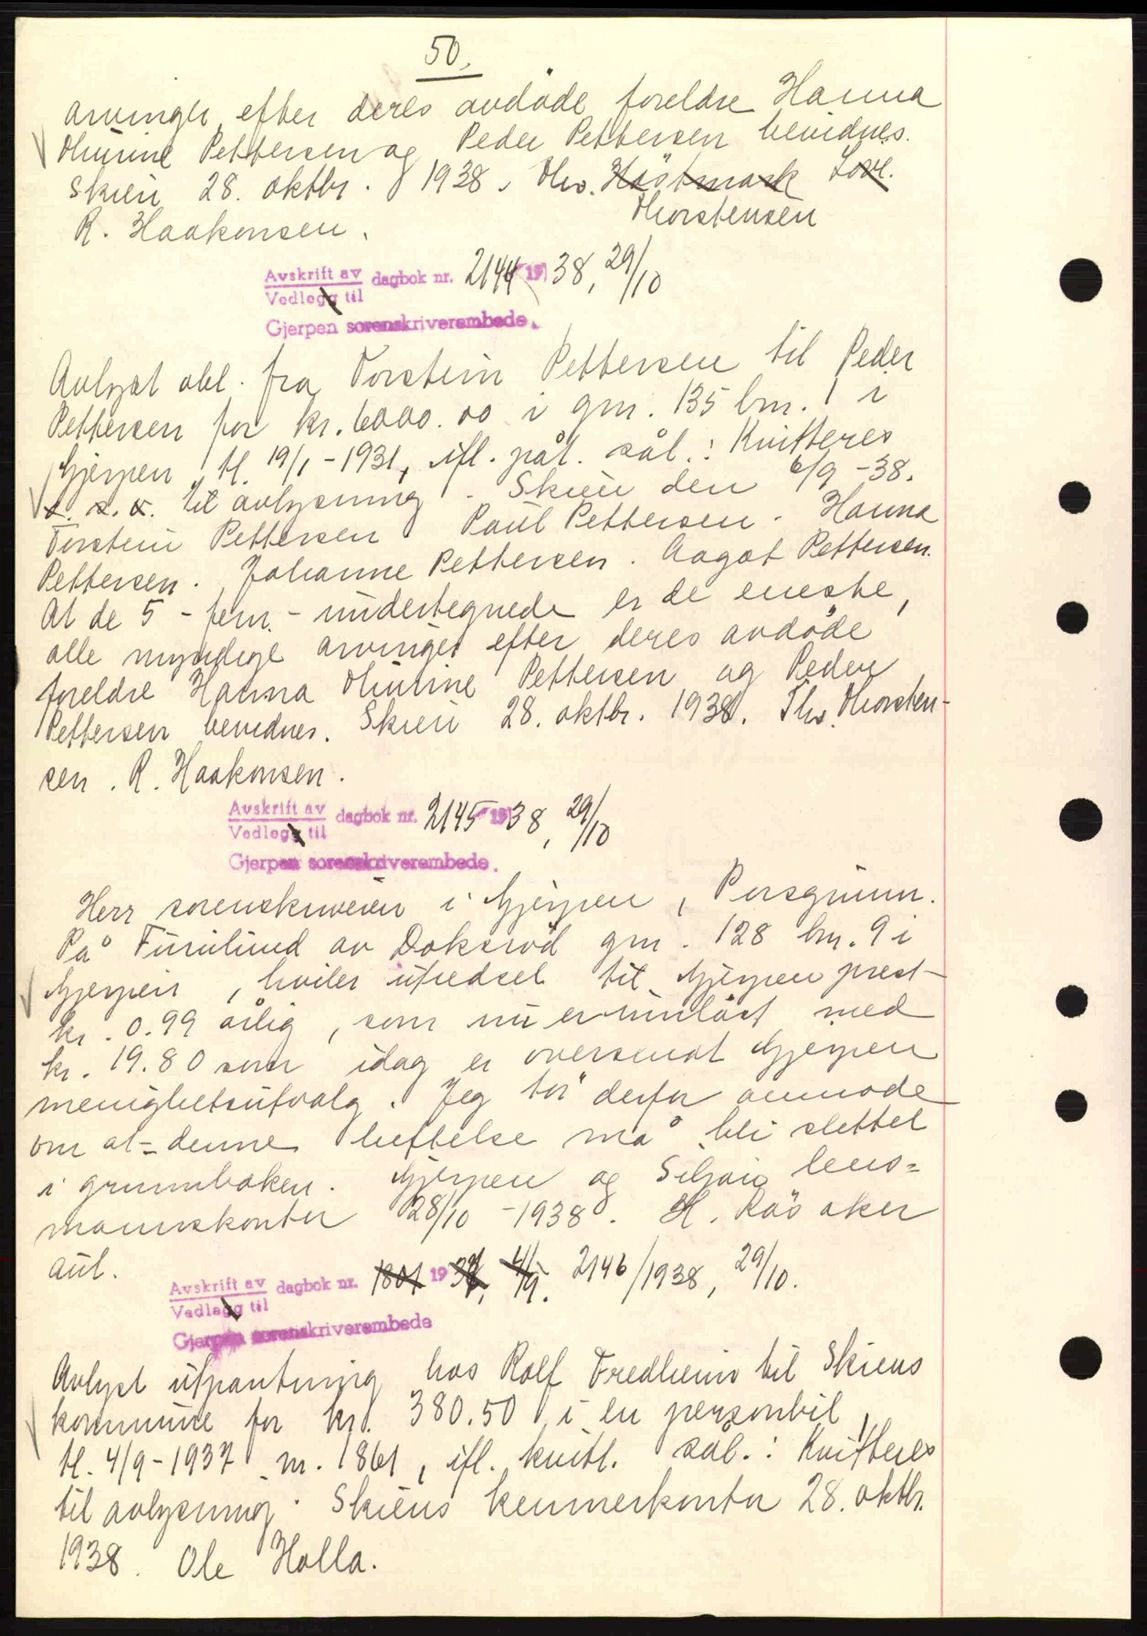 50.
arvinger efter deres avdøde foreldre Hanna
Thurine Pettersen og Peder Pettersen bevidnes.
Skien 28. oktbr. 1938. Ths. Höstmark Lovl.
Thorstensen
R. Haakonsen.
Avskrift av dagbok nr. 2144 1938, 29/10
Vedlegg til
Gjerpen sorenskriverembede.
Avlyst obl. fra Torstein Pettersen til Peder
Pettersen for kr. 6000.00 i gnr. 135 bnr. 1 i
Gjerpen, tl. 19/1-1931, ifl. påt. sål.: Kvitteres
s. s. x. til avlysning. Skien den 6/9-38.
Torstein Pettersen Paul Pettersen. Hanna
Pettersen. Johanne Pettersen. Aagot Pettersen.
At de 5 - fem - undertegnede er de eneste,
alle myndige arvinger efter deres avdøde
foreldre Hanna Thurine Pettersen og Peder
Pettersen bevidnes. Skien 28. oktbr. 1938. Ths. Thorsten-
sen. R. Haakonsen.
Avskrift av dagbok nr. 2145 1938, 29/10
Vedlegg til
Gjerpen sorenskriverembede.
Herr sorenskriveren i Gjerpen, Porsgrunn.
På Furulund av Doksrød gnr. 128 bnr. 9 i
Gjerpen, hviler utredsel til Gjerpen prest
kr. 0.99 årlig, som nu er innløst med
kr. 19.80 som idag er oversendt Gjerpen
menighetsutvalg. Jeg tør derfor anmode
om at denne heftelse må bli slettet
i grunnboken. Gjerpen og Siljan lens=
mannskontor 28/10-1938. H. Røsaker
aut.
Avskrift av dagbok nr. 1801 1937, 4/9. 2146/1938, 29/10.
Vedlegg til
Gjerpen sorenskriverembede
Avlyst utpantning hos Rolf Fredheim til Skiens
kommune for kr. 380.50 i en personbil,
tl. 4/9-1937 nr. 1861, ifl. kvitt. sål.: Kvitteres
til avlysning. Skiens kemnerkontor 28. oktbr.
1938. Ole Holla.